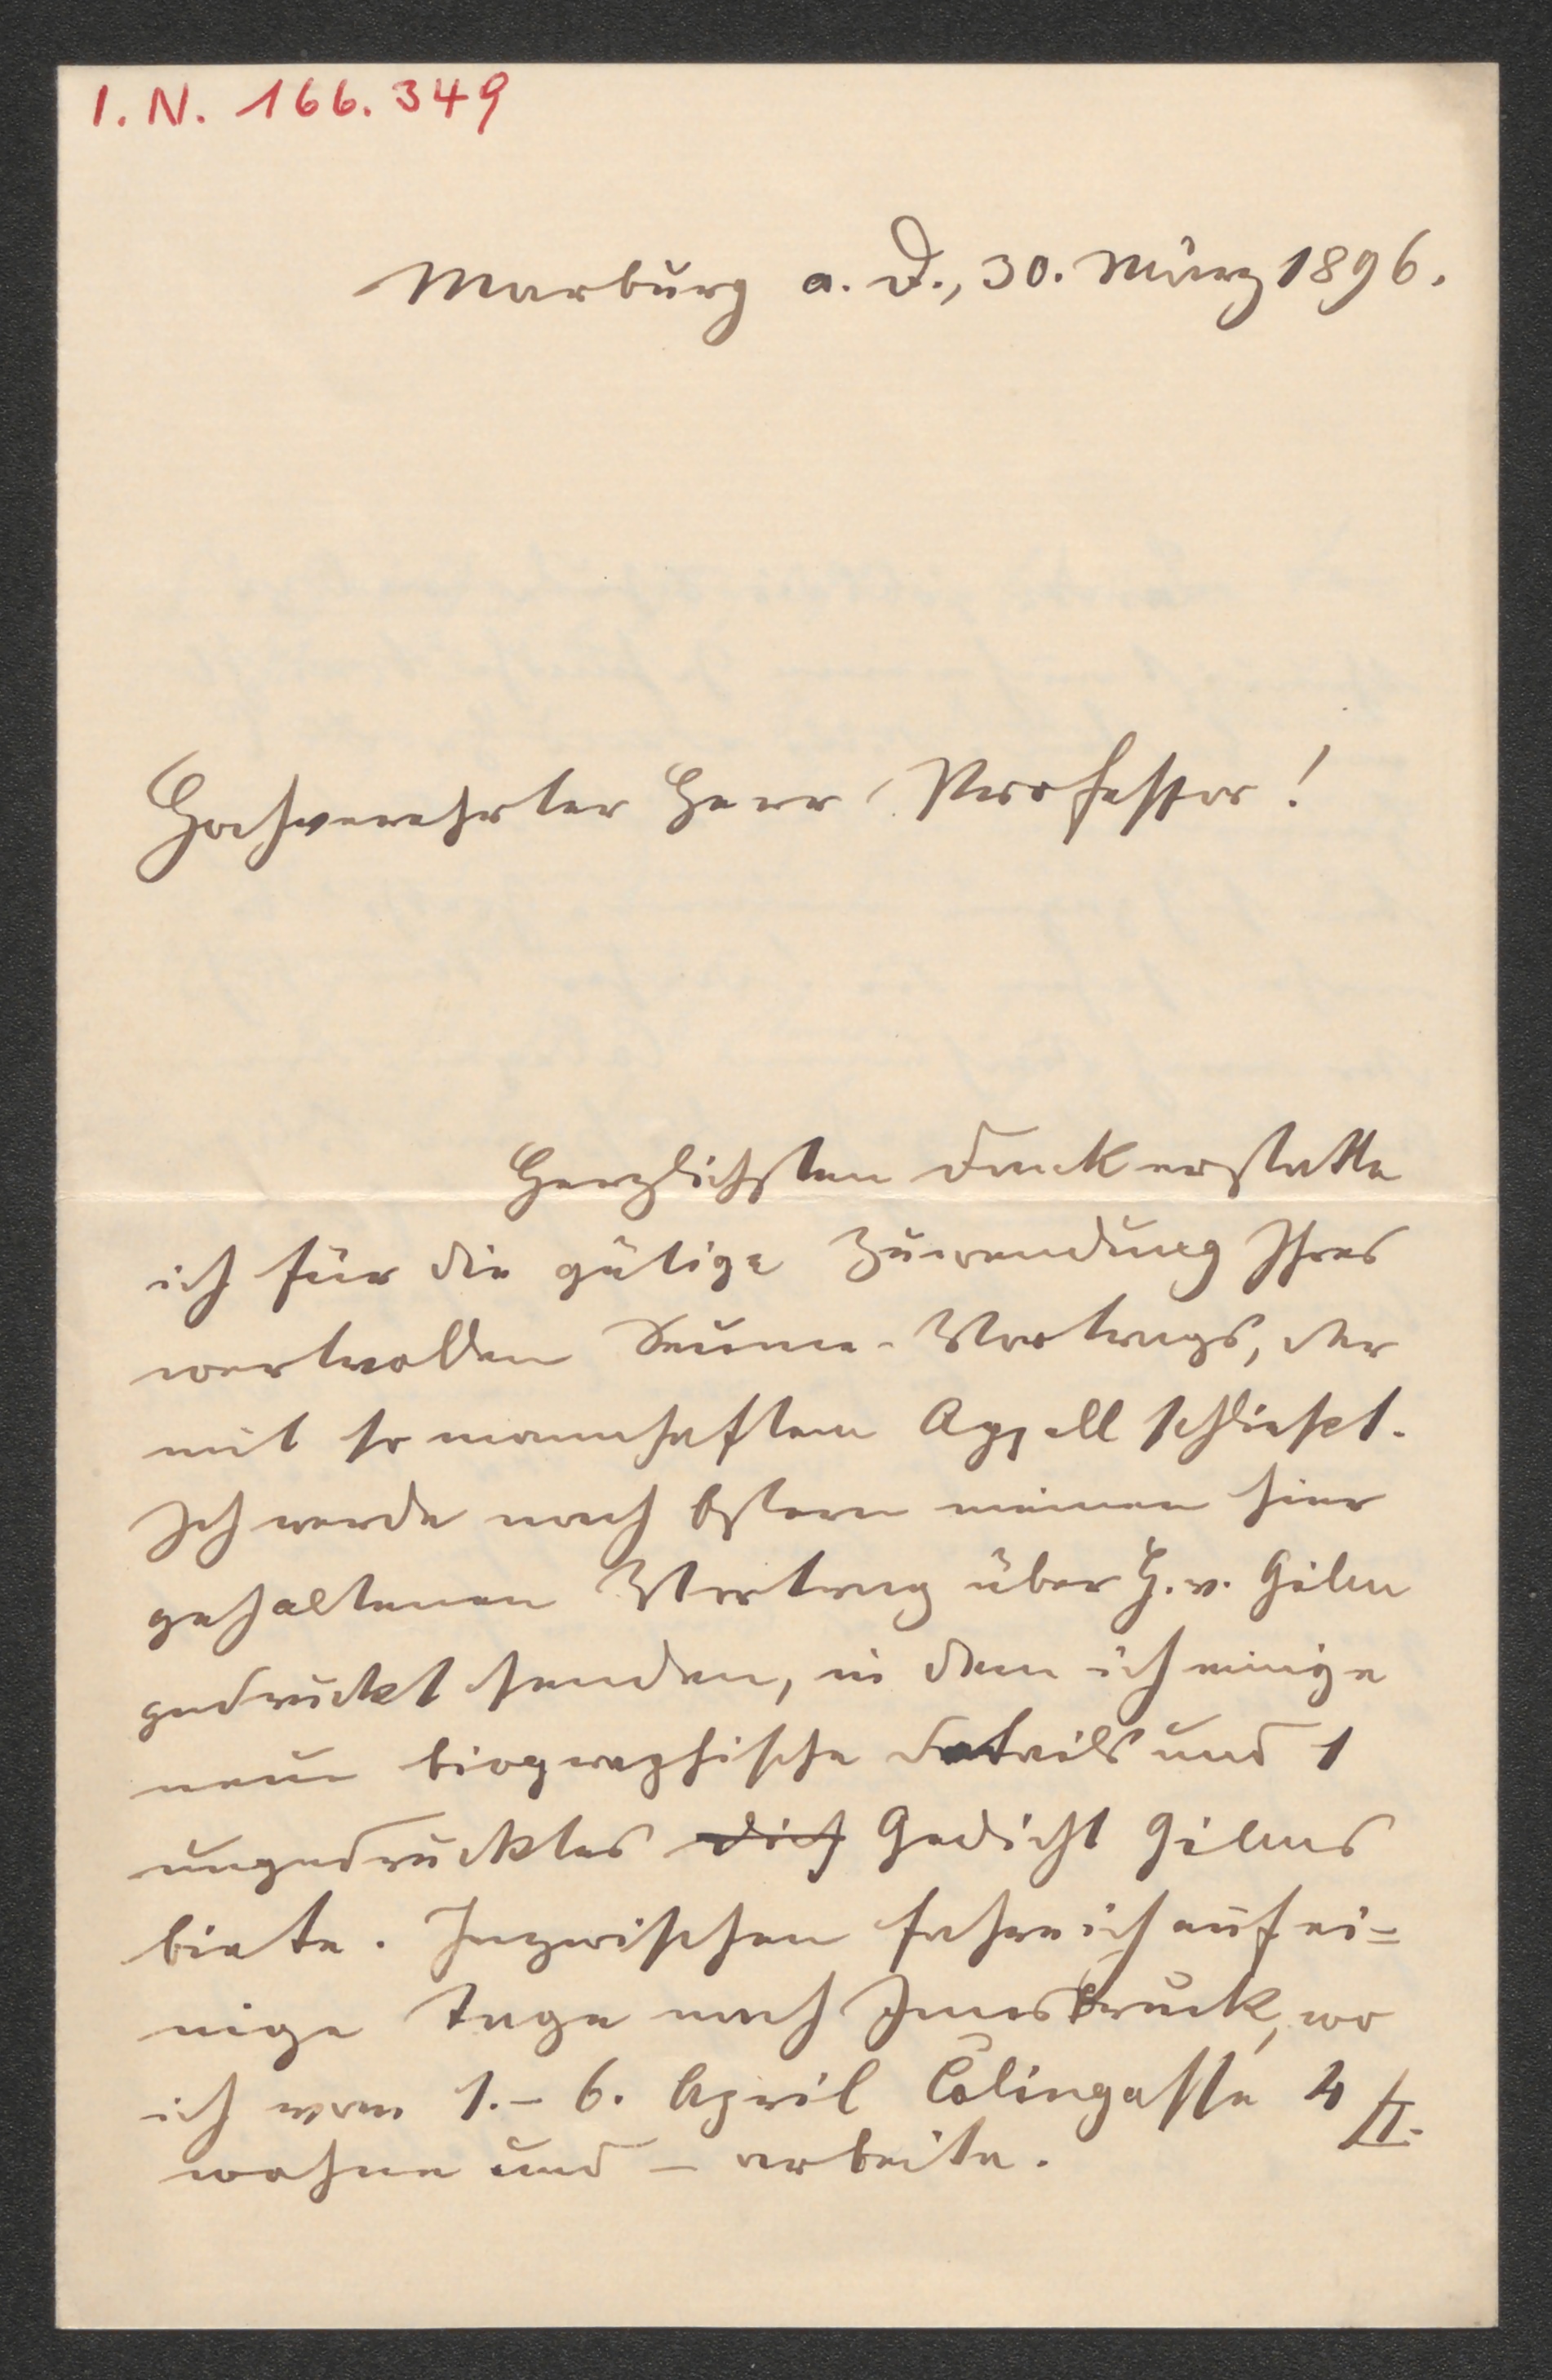 I. N. 166.349
Marburg a. D., 30. März 1896.
Hochverehrter Herr Professor!
Herzlichsten Dank erstatte
ich für die gütige Zuwendung Ihres
wertvollen Seume-Vortrags, der
mit so mannhaftem Appell schließt.
Ich werde nach Ostern meinen hier
gehaltenen Vortrag über H. v. Gilm
gedruckt senden, in dem ich einige
neue biographische Details und 1
ungedrucktes dich Gedicht Gilms
biete. Inzwischen fahre ich auf ei=
nige Tage nach Innsbruck, wo
ich vom 1.– 6. April Colingasse 4/II.
wohne und – arbeite.